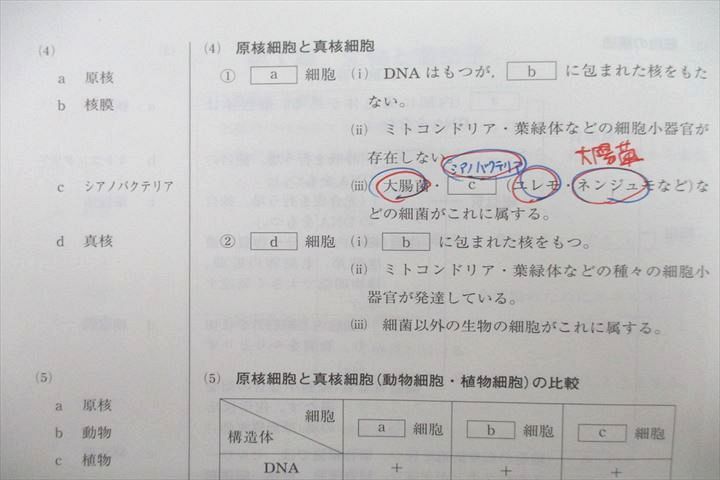 (4)
a 原核
b 核膜
c シアノバクテリア
d 真核
(5)
a 原核
b 動物
c 植物
(4) 原核細胞と真核細胞
① a 細胞 (i) DNAはもつが, b に包まれた核をもた
ない。
(ii) ミトコンドリア・葉緑体などの細胞小器官が
存在しない
シアノバクテリア
大腸菌
(iii) 大腸菌・ c (ユレモ・ネンジュモなど)な
どの細菌がこれに属する。
② d 細胞 (i) b に包まれた核をもつ。
(ii) ミトコンドリア・葉緑体などの種々の細胞小
器官が発達している。
(iii) 細菌以外の生物の細胞がこれに属する。
(5) 原核細胞と真核細胞(動物細胞・植物細胞)の比較
細胞
構造体
a 細胞 b 細胞 c 細胞
DNA + + +